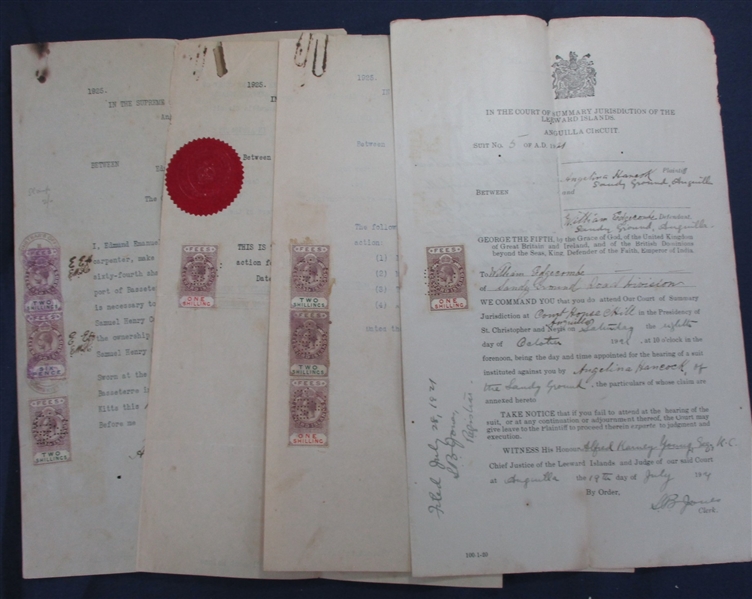 1925.
IN THE SUPREME
BETWEEN
The
I, Edmund Emanuel
carpenter, make
sixty-fourth sha
port of Basseterre
is necessary to
Samuel Henry
the ownership
Samuel Henry
Sworn at the
Basseterre in
Kitts this
Before me
FEES
TWO
SHILLINGS
FEES
FEES
TWO
SHILLINGS.
1925.
IN
Between
THIS IS
action fo
Dat
FEES
ONE
SHILLING
1925.
IN
Between
The follow
action:
(1)
(2)
(3)
(4).
Dated the
FEES
TWO
SHILLINGS
FEES
TWO
SHILLINGS
FEES
ONE
SHILLING
IN THE COURT OF SUMMARY JURISDICTION OF THE
LEEWARD ISLANDS.
ANGUILLA CIRCUIT.
SUIT NO. 5 OF A.D. 192
Angelina Hancock Plaintiff
Sandy Ground, Anguilla
BETWEEN and
William Edgecombe Defendant.
Sandy Ground, Anguilla.
GEORGE THE FIFTH, by the Grace of God, of the United Kingdom
of Great Britain and Ireland, and of the British Dominions
beyond the Seas, King, Defender of the Faith, Emperor of India.
To William Edgecombe
of Sandy Ground Road Division
WE COMMAND YOU that you do attend our Court of Summary
Jurisdiction at Court House Hill in the Presidency of
St. Christopher and Nevis on Saturday the eighth
Anguilla
day of October 1921 at 10 o'clock in the
forenoon, being the day and time appointed for the hearing of a suit
instituted against you by Angelina Hancock of
the Sandy Ground, the particulars of whose claim are
annexed hereto
TAKE NOTICE that if you fail to attend at the hearing of the
suit, or at any continuation or adjournment thereof, the Court may
give leave to the Plaintiff to proceed therein exparte to judgment and
execution.
WITNESS His Honour Alfred Young Esq K.C.
Chief Justice of the Leeward Islands and Judge of our said Court
at Anguilla the 19th day of July 1921
By Order,
S B Jones
Clerk.
FEES
ONE
SHILLING
Filed July 28, 1921
S B Jones
Registrar